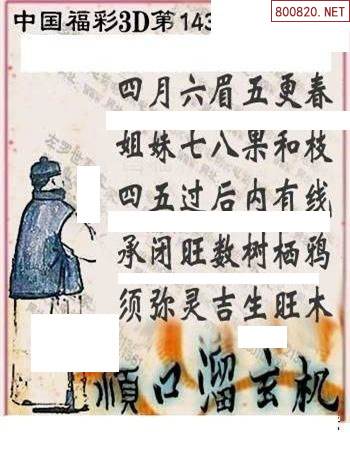 800820.NET
中国福彩3D第143
四月六眉五更春
姐妹七八果和枝
四五过后内有线
承闭旺数树栖鸦
须弥灵吉生旺木
顺口溜玄机